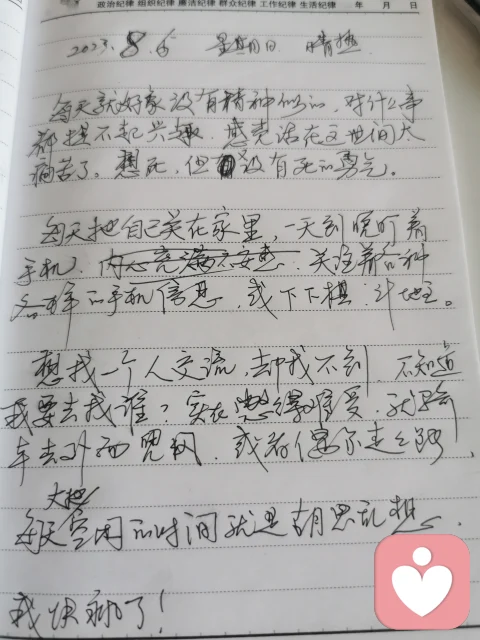 政治纪律 组织纪律 廉洁纪律 群众纪律 工作纪律 生活纪律 年 月 日
2023.8.6 星期日 晴热
每天就好象没有精神似的，对什么事
都提不起兴趣，感觉活在这世间太
痛苦了。想死，但没有死的勇气。
每天把自己关在家里，一天到晚盯着
手机，内心充满不安患．关注着各种
各样的手机信息，或下下棋，斗地主。
想找一个人交流，却找不到，不知道
我要去找谁？实在难受，就骑
车去外面兜风，或者偶尔走走路，
大把
每天空闲的时间就是胡思乱想．
我快疯了！